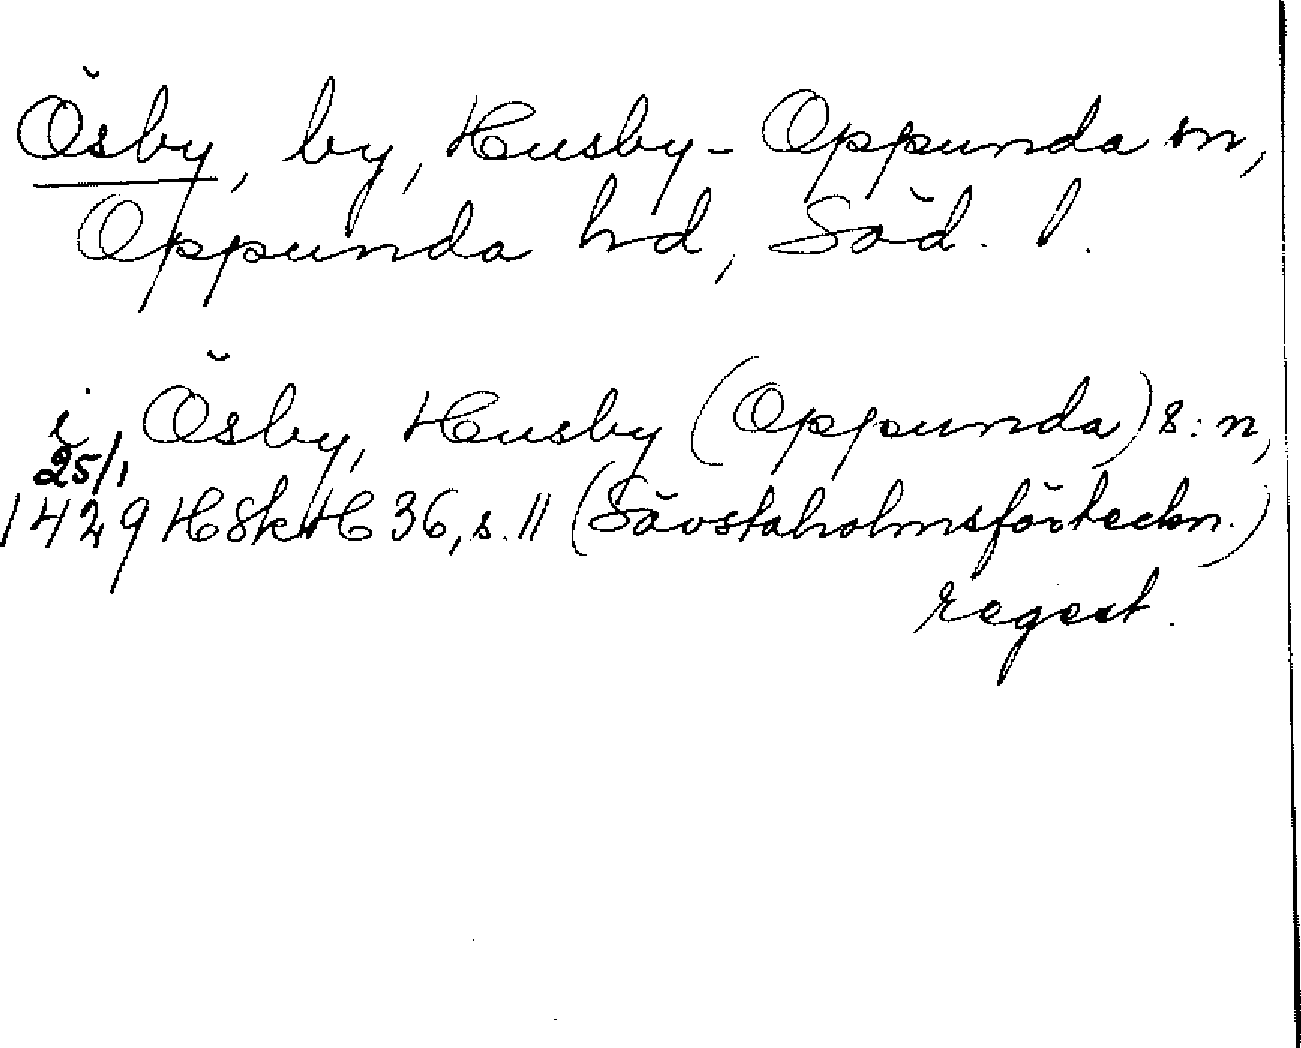 Ösby, by, Husby-Oppunda sn,
Oppunda hd, Söd. l.
i Ösby, Husby (Oppunda) s:n,
25/1
1429 HSkH 36, s. 11 (Sävstaholmsförteckn.)
regest.